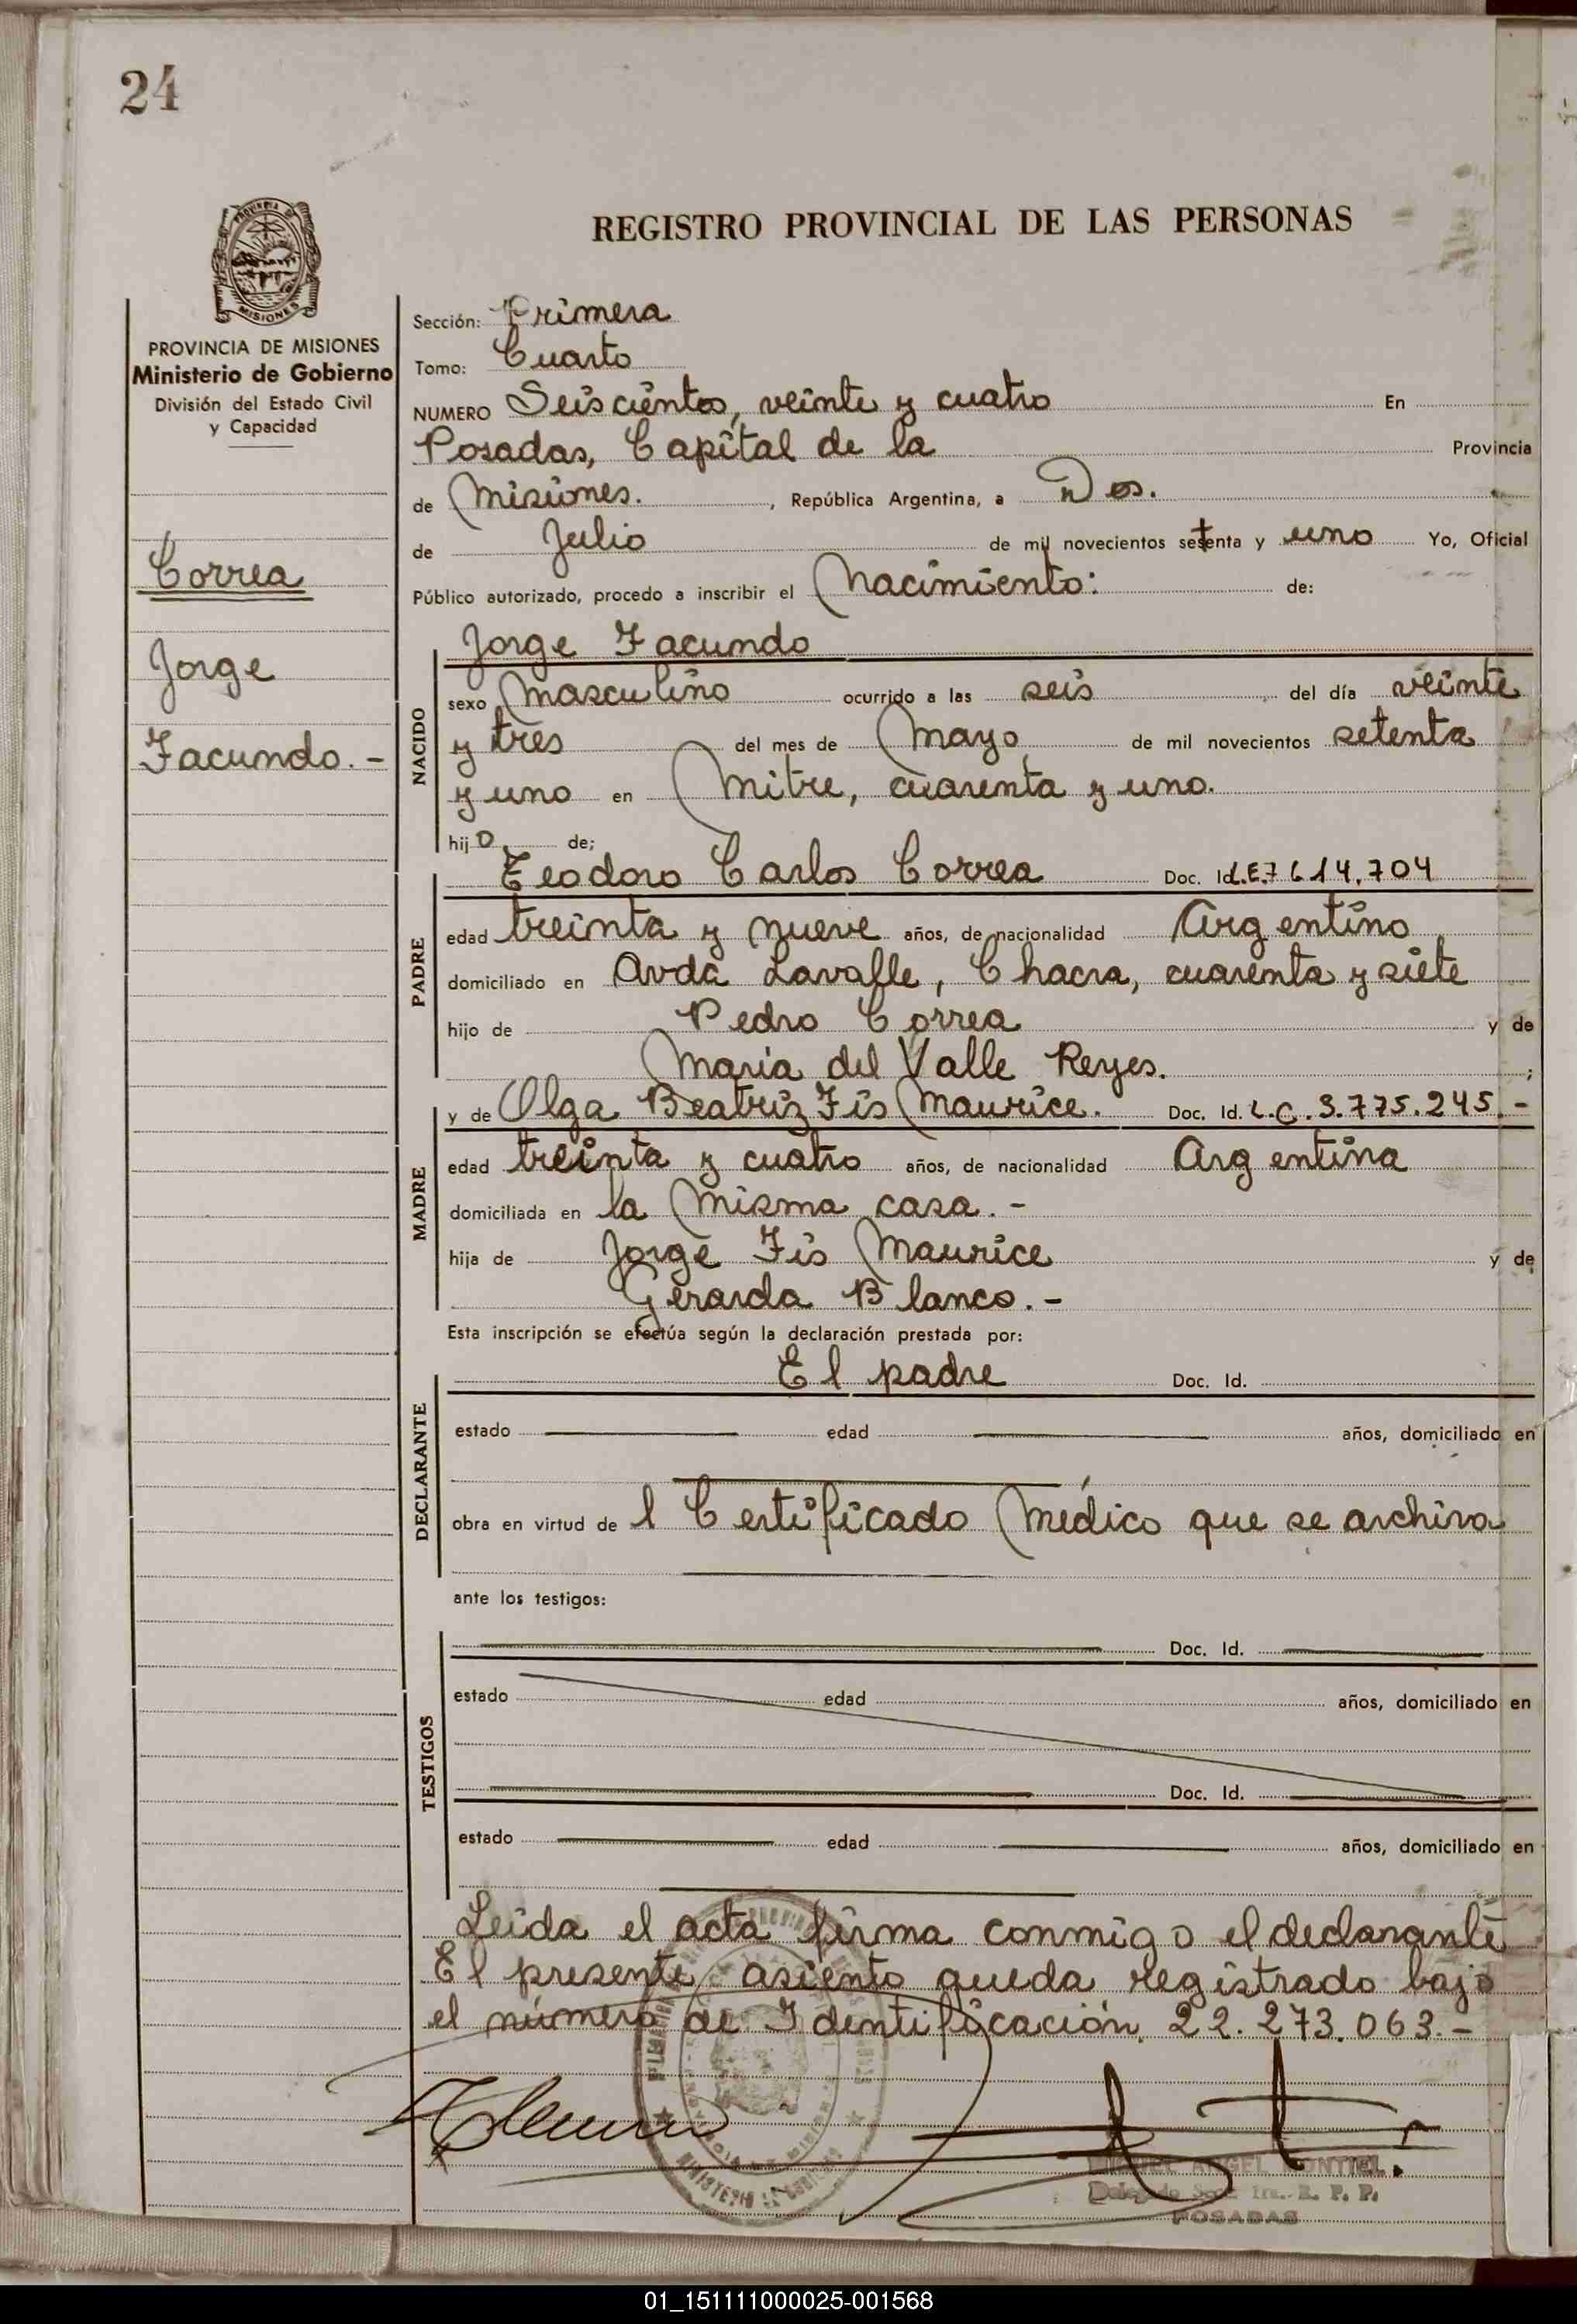 24
REGISTRO PROVINCIAL DE LAS PERSONAS
MISIONES
PROVINCIA DE MISIONES
Ministerio de Gobierno
División del Estado Civil
y Capacidad
Correa
Jorge
Facundo.-
Sección: Primera
Tomo: Cuarto
NUMERO Seiscientos, veinte y cuatro En
Posadas, Capital de la Provincia
de Misiones. , República Argentina, a Dos.
de Julio de mil novecientos setenta y uno Yo, Oficial
Público autorizado, procedo a inscribir el Nacimiento: de:
NACIDO
Jorge Facundo
sexo Masculino ocurrido a las seis del día veinte
y tres del mes de Mayo de mil novecientos setenta
y uno en Mitre, cuarenta y uno.
hijo de;
PADRE
Teodoro Carlos Correa Doc. Id. L.E. 7614.704
edad treinta y nueve años, de nacionalidad Argentino
domiciliado en Avda Lavalle, Chacra, cuarenta y siete
hijo de Pedro Correa y de
Maria del Valle Reyes. ;
MADRE
y de Olga Beatriz Fis Maurice. Doc. Id. L.C. 3.775.245.-
edad treinta y cuatro años, de nacionalidad Argentina
domiciliada en la misma casa.-
hija de Jorge Fis Maurice y de
Gerarda Blanco.-
Esta inscripción se efectúa según la declaración prestada por:
DECLARANTE
El padre Doc. Id.
estado edad años, domiciliado en
obra en virtud de l Certificado Médico que se archiva
ante los testigos:
TESTIGOS
Doc. Id.
estado edad años, domiciliado en
Doc. Id.
estado edad años, domiciliado en
Leida el acta firma conmigo el declarante
El presente asiento queda registrado bajo
el número de Identificación 22.273.063.-
MIGUEL ANGEL MONTIEL
Delegado Secc. 1ra. R. P. P.
POSADAS
01_151111000025-001568